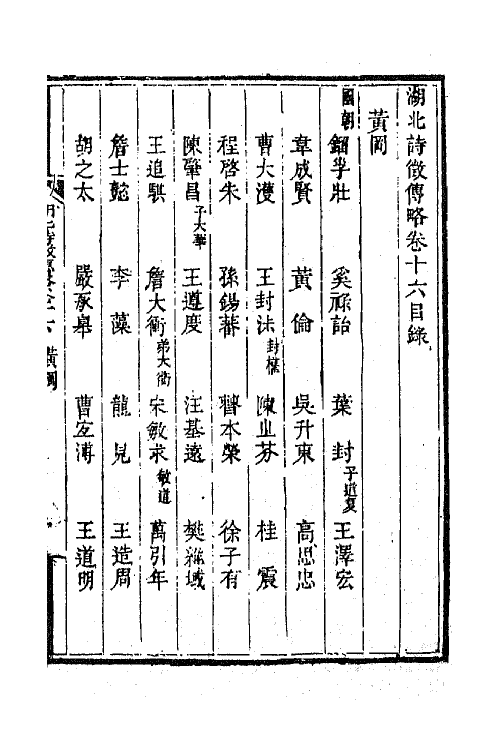 湖北詩徵傳略卷十六目錄
黃岡
國朝 鈕孚壯 奚祿詒 葉封子道复 王澤宏
韋成賢 黃倫 吳升東 高思忠
曹大濩 王封溁封權 陳业芬 桂震
程啓朱 孫錫蕃 曹本榮 徐子有
陳肇昌子大華 王遵度 汪基遠 樊維域
王追騏 詹大衢弟大衛 宋敏求敏道 萬引年
詹士懿 李藻 龍見 王造周
胡之太 嚴承皋 曹宜溥 王道明
黃岡